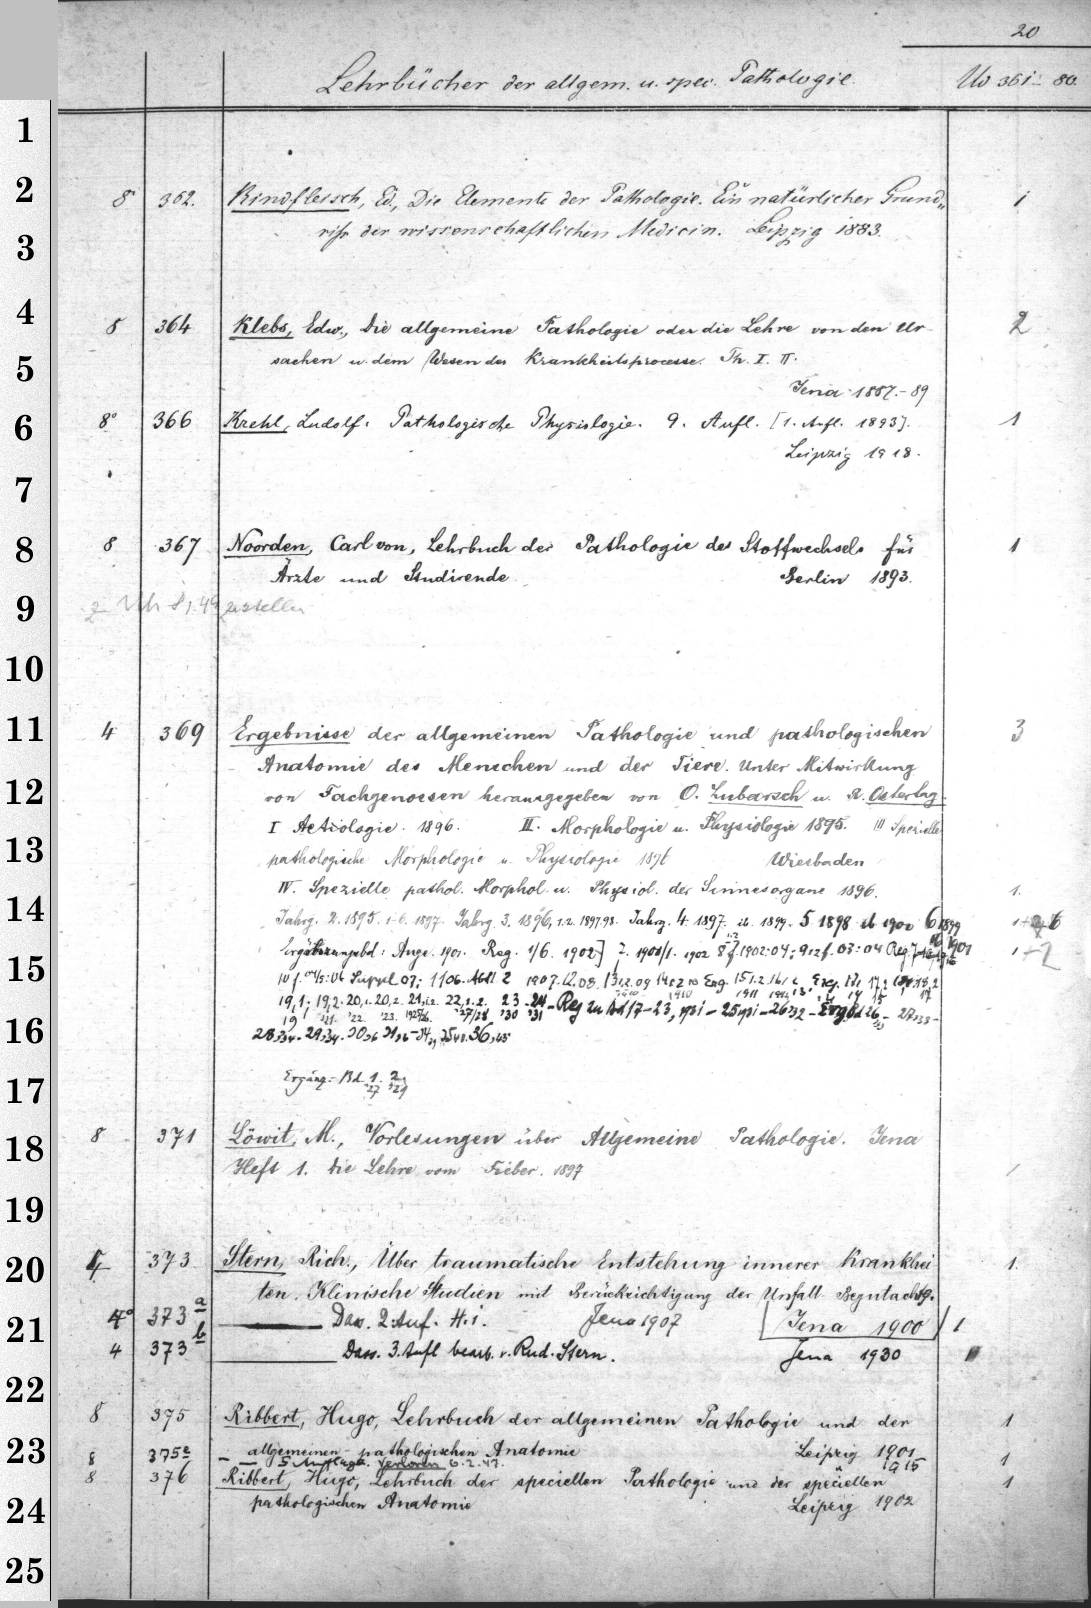 20
Lehrbücher der allgem. u. spec. Pathologie. Uv 361 - 80.
1
2
8° 362. Rindfleisch, Ed., Die Elemente der Pathologie. Ein natürlicher Grund„ 1
riss der wissenschaftlichen Medicin. Leipzig 1883.
3
4
8 364 Klebs, Edw., Die allgemeine Pathologie oder die Lehre von den Ur- 2
sachen u. dem Wesen der Krankheitsprocesse. Th. I. II.
5
Jena 1887.-89
6
8° 366 Krehl, Ludolf. Pathologische Physiologie. 9. Aufl. [1. Aufl. 1893]. 1
Leipzig 1918.
7
8
8 367 Noorden, Carl von, Lehrbuch der Pathologie des Stoffwechsels für 1
Ärzte und Studirende. Berlin 1893.
9
10
11
4 369 Ergebnisse der allgemeinen Pathologie und pathologischen 3
Anatomie des Menschen und der Tiere. Unter Mitwirkung
12
von Fachgenossen herausgegeben von O. Lubarsch u. R. Ostertag.
I Aetiologie. 1896. II. Morphologie u. Physiologie 1895. III Spezielle
13
pathologische Morphologie u. Physiologie 1896 Wiesbaden
IV. Spezielle pathol. Morphol. u. Physiol. der Sinnesorgane 1896. 1.
14
Jahrg. 2. 1895. 1897. Jahrg. 3. 1896, 1.2. 1897.98. Jahrg. 4. 1897. 1899. 5 1898 1900 6 1899
Ergänzungsbd: Auge. 1901. Reg. 1/6. 1902] 7. 1900/1. 1902 8 1902.04; 9 03.04 Reg
15
Suppl. 07; 11 06. Abt 2 1907. 12.08. 13
19,1. 19,2. 20,1. 20,2. 21, 22,1.2. 23 - 24 - Reg zu Bd 17-23, 1931 - 25 1931 - 26 32 - Erg Bd 26
16
28,34 - 29,34 - 30,36 31,36 - 36,43
Ergänz.-Bd. 1. 2.
'27 '29
17
18
8 371 Löwit, M., Vorlesungen über Allgemeine Pathologie. Jena
Heft 1. Die Lehre vom Fieber. 1897
19
20
4 373 Stern, Rich., Über traumatische Entstehung innerer Krankhei 1.
ten. Klinische Studien mit Berücksichtigung der Unfall Begutachtg.
21
4° 373 a Dass. 2. Auf. H. 1. Jena 1907 Jena 1900 1
4 373 b Dass. 3. Aufl bearb. v. Rud. Stern. Jena 1930
22
8 375 Ribbert, Hugo, Lehrbuch der allgemeinen Pathologie und der 1
23
allgemeinen pathologischen Anatomie Leipzig 1901
8 375a — — 5. Auflage. Verloren 6.2.47. " 1915 1
8 376 Ribbert, Hugo, Lehrbuch der speciellen Pathologie und der speciellen 1
24
pathologischen Anatomie Leipzig 1902
25